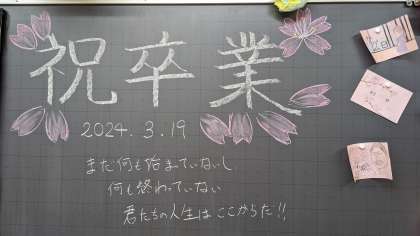 祝卒業
2024.3.19
まだ何も始まっていないし
何も終わっていない
君たちの人生はここからだ!!